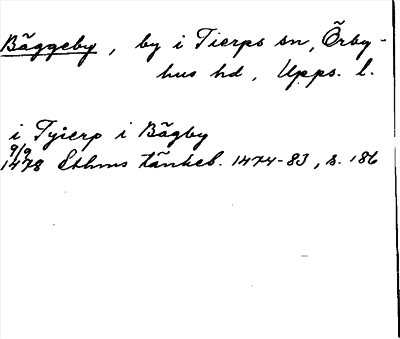 Bäggeby, by i Tierps sn, Örby-
hus hd, Upps. l.
i Tyierp i Bägby
9/9
1478 Sthms tänkeb. 1474-83, s. 186